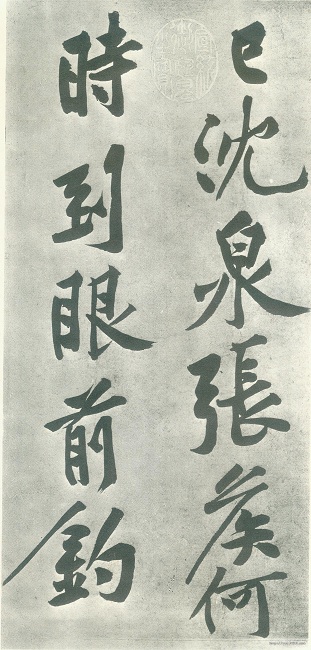 已沈泉張侯何
時到眼前釣